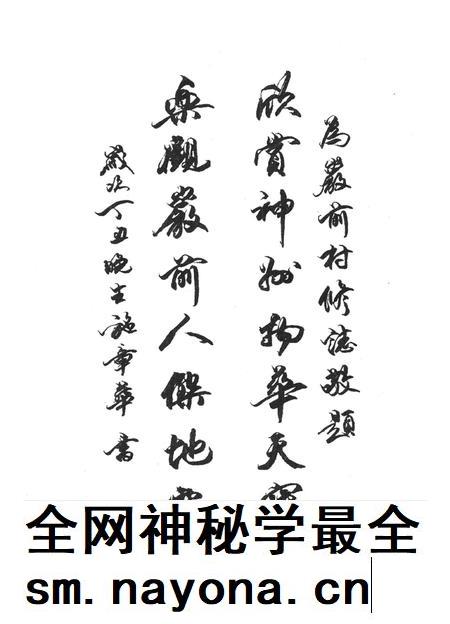 為嚴前村修誌敬題
欣賞神州物華天
樂觀嚴前人傑地
歲次丁丑晚生施章華書
全网神秘学最全
sm.nayona.cn